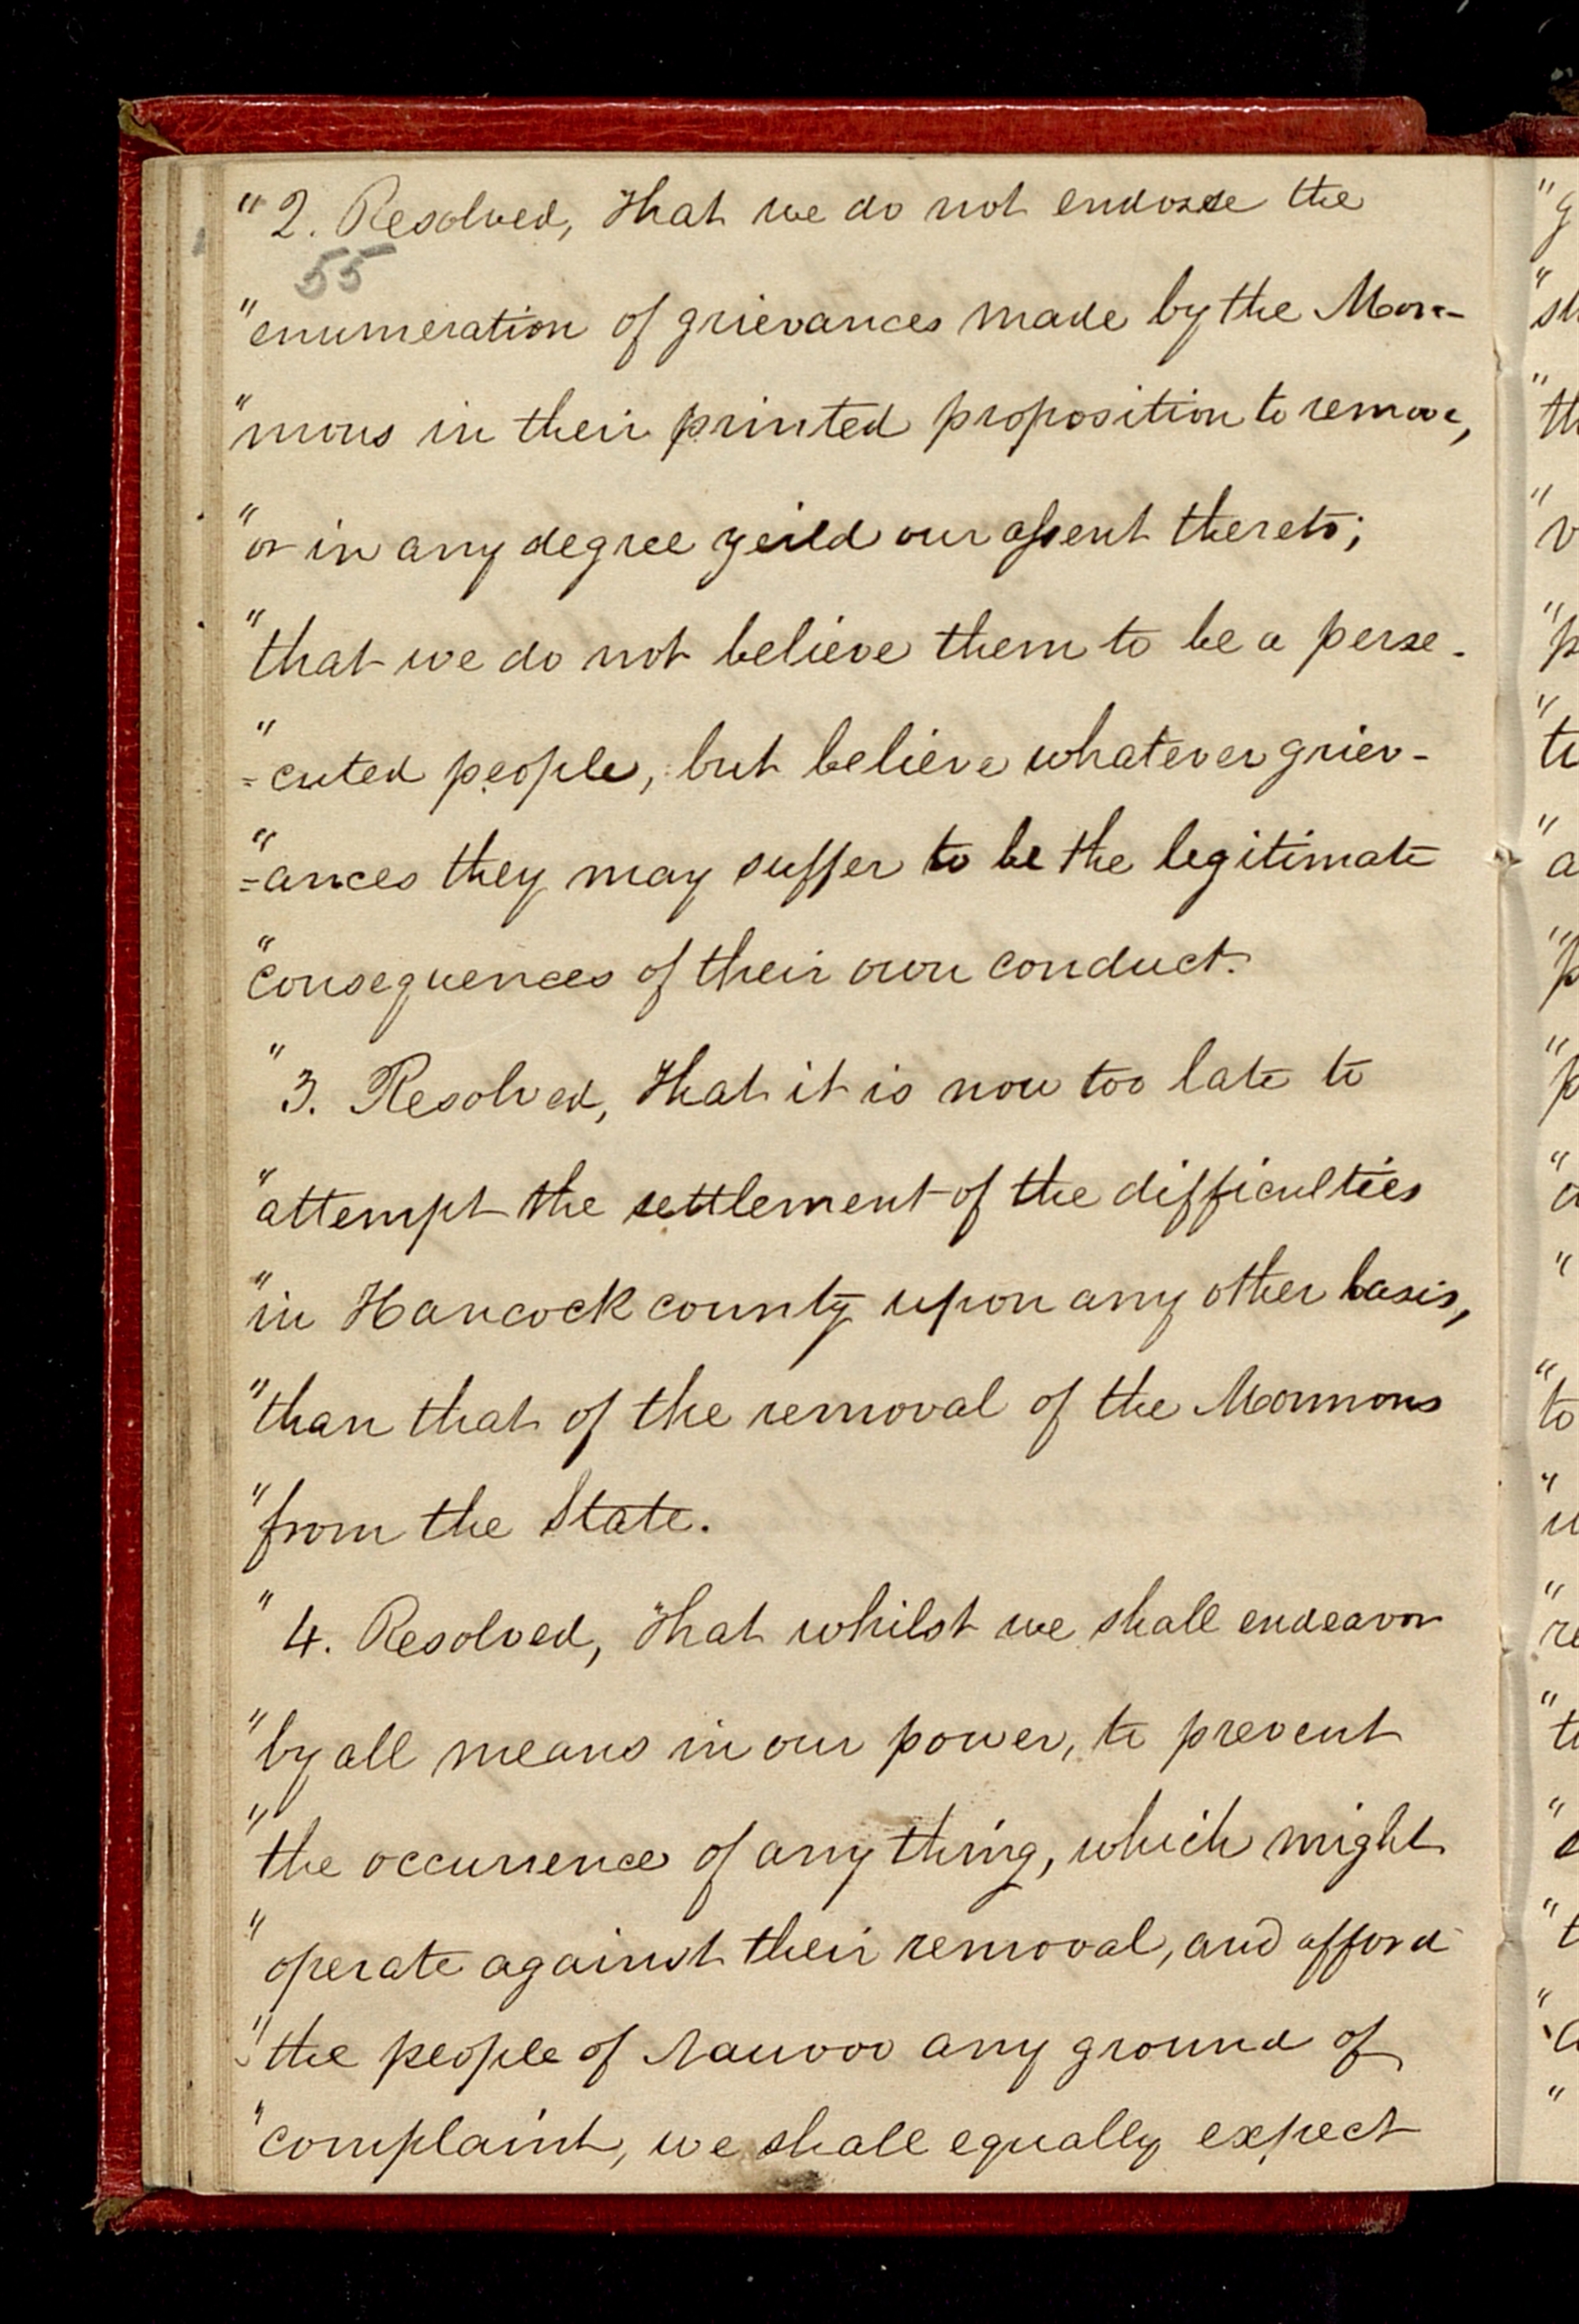 " 2. Resolved, That we do not endorse the
55
"enumeration of grievances made by the Mor-
"mons in their printed proposition to remove,
"or in any degree yeild our assent thereto;
"that we do not believe them to be a perse-
"=cuted people, but believe whatever griev-
"=ances they may suffer to be the legitimate
"consequences of their own conduct.
" 3. Resolved, That it is now too late to
"attempt the settlement of the difficulties
"in Hancock county upon any other basis,
"than that of the removal of the Mormons
"from the State.
" 4. Resolved, That whilst we shall endeavor
"by all means in our power, to prevent
"the occurrence of any thing, which might
"operate against their removal, and afford
"the people of Nauvoo any ground of
"complaint, we shall equally expect